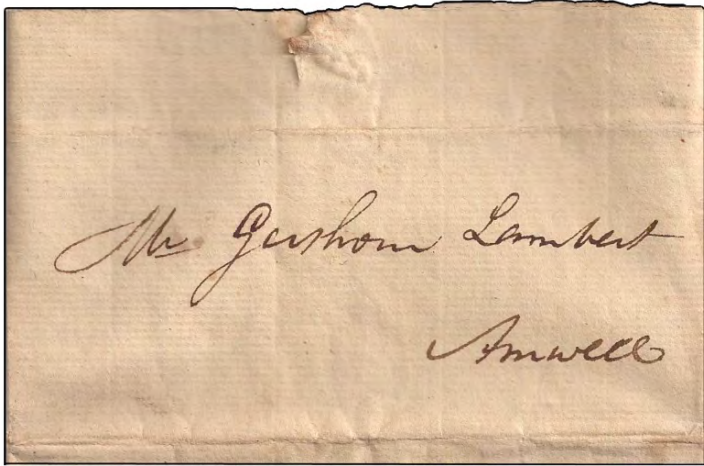 Mr Gershom Lambert
Amwell